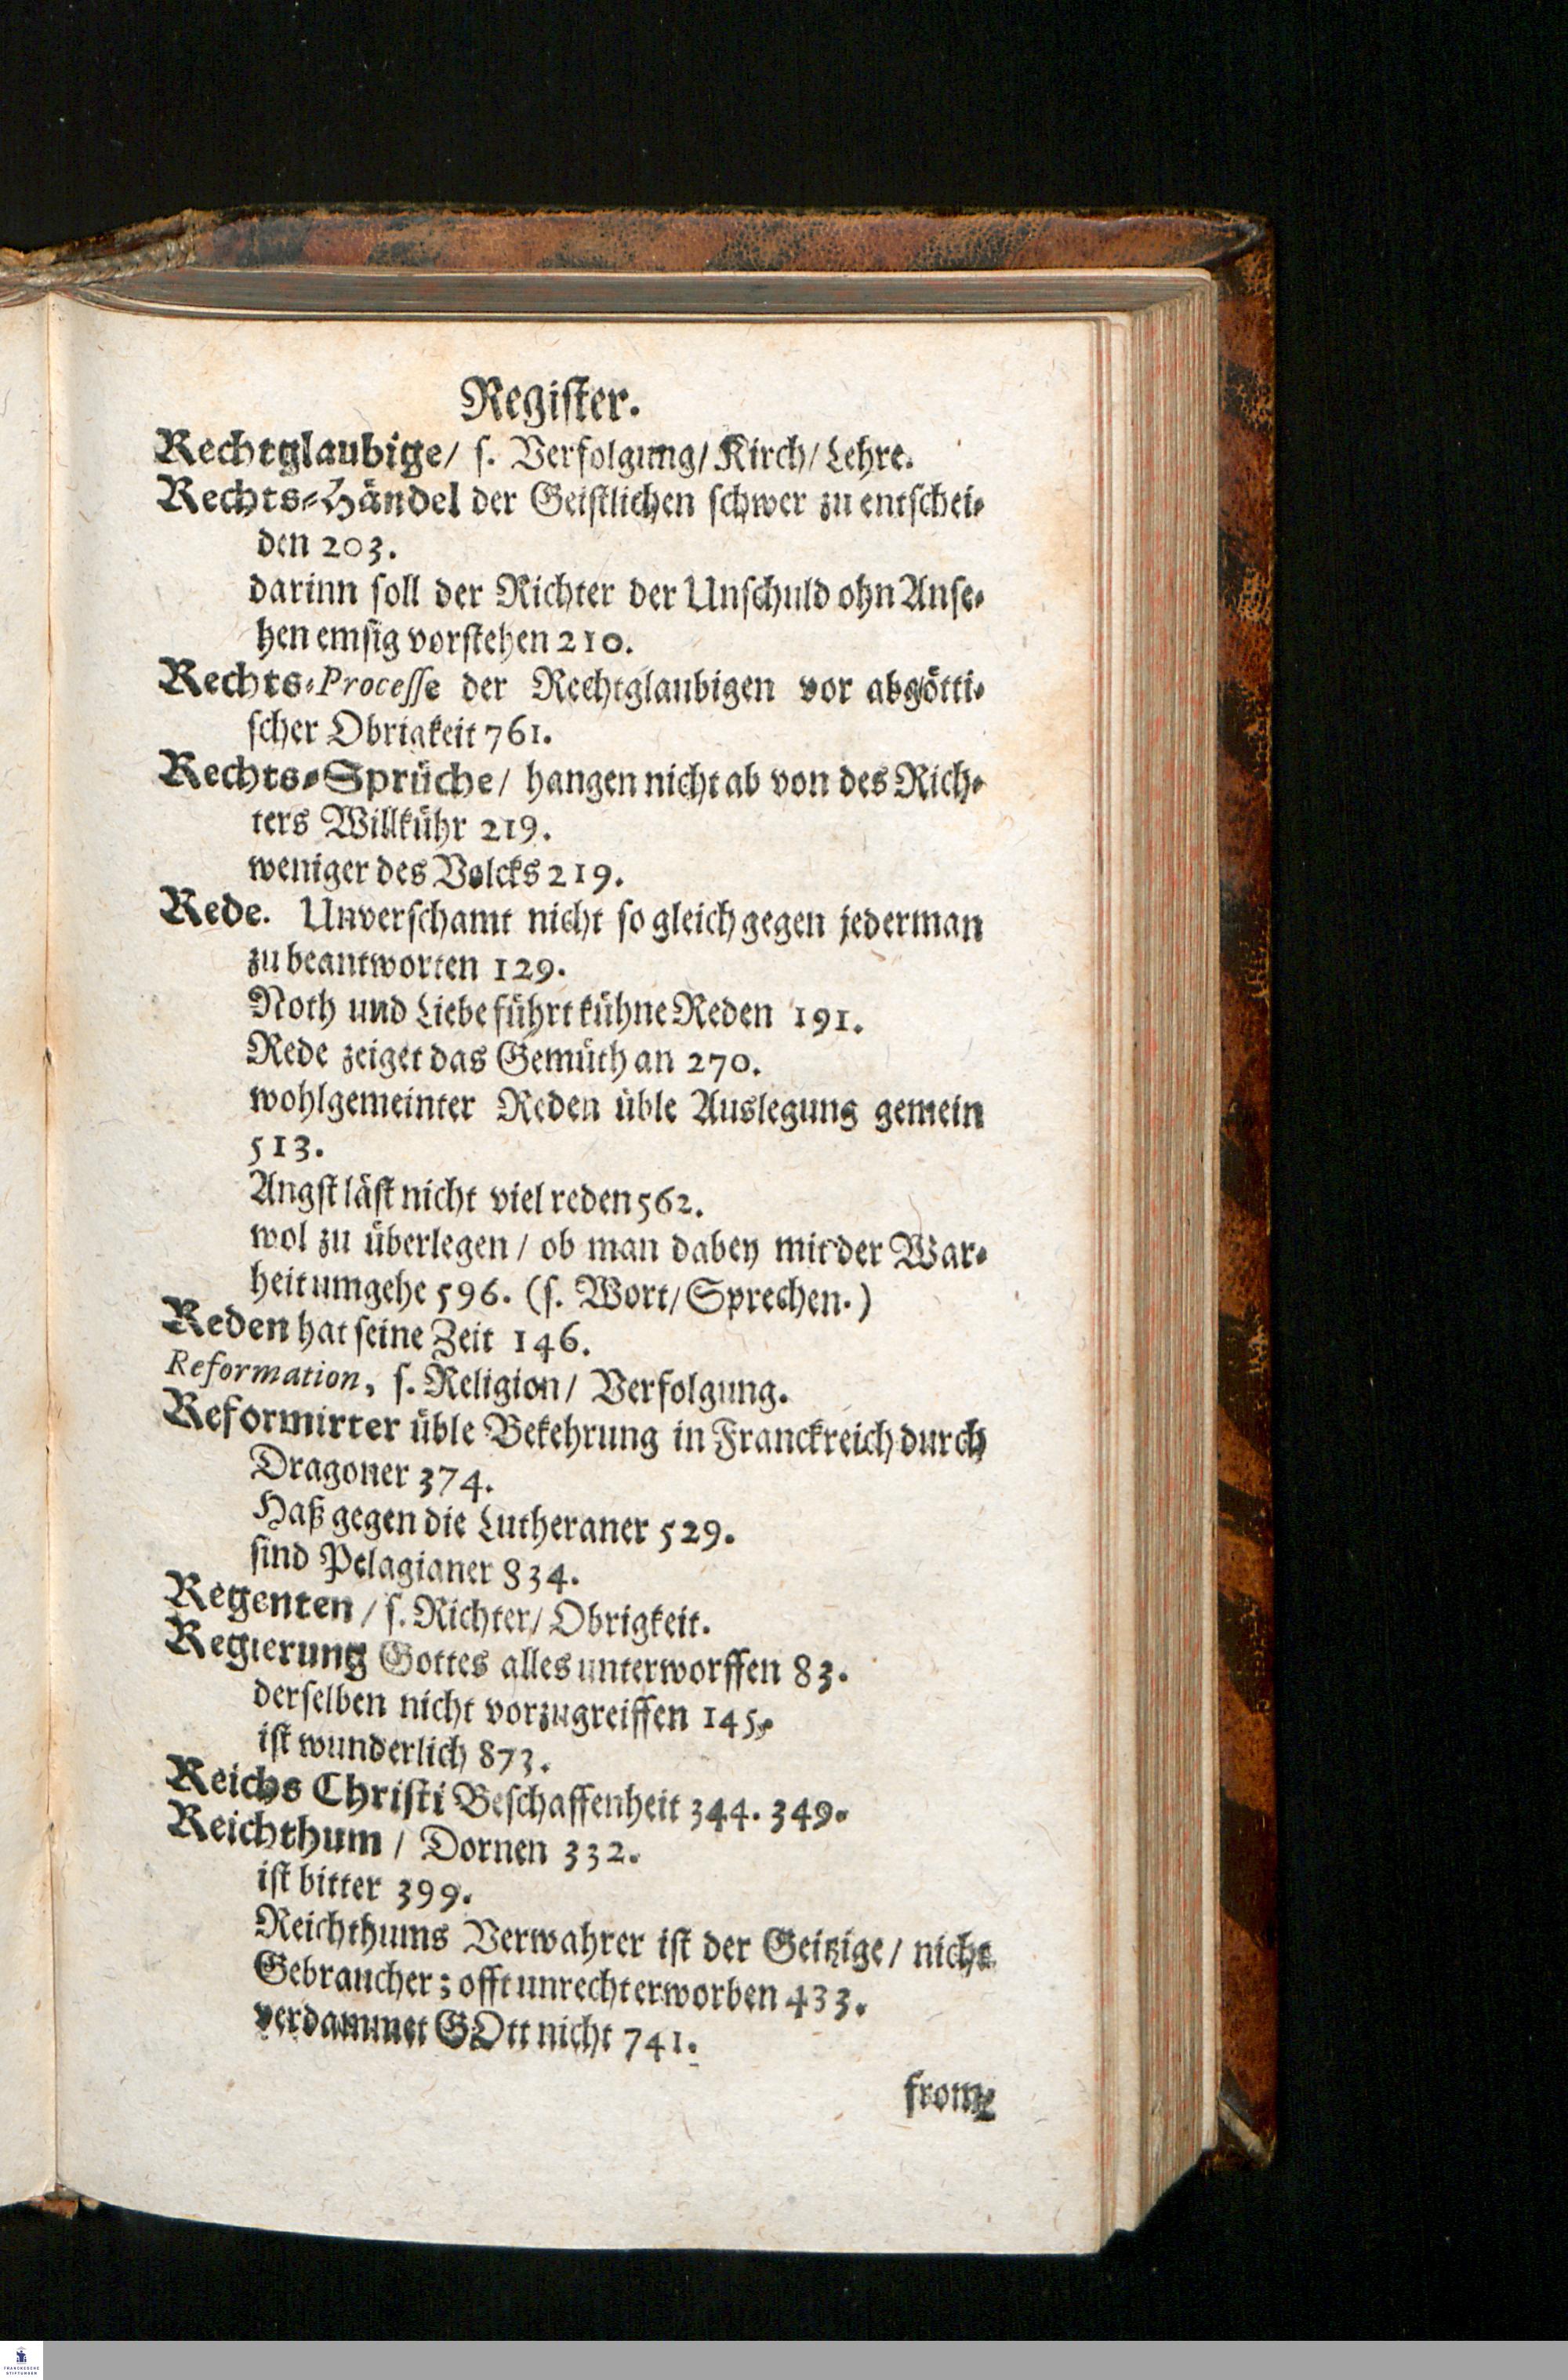 Register.
Rechtglaubige/ s. Verfolgung/ Kirch/ Lehre.
Rechts-Händel der Geistlichen schwer zu entschei-
den 203.
darinn soll der Richter der Unschuld ohn Anse-
hen emsig vorstehen 210.
Rechts-Processe der Rechtglaubigen vor abgötti-
scher Obrigkeit 761.
Rechts-Sprüche/ hangen nicht ab von des Rich-
ters Willkühr 219.
weniger des Volcks 219.
Rede. Unverschamt nicht so gleich gegen jederman
zu beantworten 129.
Noth und Liebe führt kühne Reden 191.
Rede zeiget das Gemüth an 270.
wohlgemeinter Reden üble Auslegung gemein
513.
Angst läst nicht viel reden 562.
wol zu überlegen/ ob man dabey mit der War-
heit umgehe 596. (s. Wort/ Sprechen.)
Reden hat seine Zeit 146.
Reformation, s. Religion/ Verfolgung.
Reformirter üble Bekehrung in Franckreich durch
Dragoner 374.
Haß gegen die Lutheraner 529.
sind Pelagianer 834.
Regenten/ s. Richter/ Obrigkeit.
Regierung Gottes alles unterworffen 83.
derselben nicht vorzugreiffen 145.
ist wunderlich 873.
Reichs Christi Beschaffenheit 344. 349.
Reichthum/ Dornen 332.
ist bitter 399.
Reichthums Verwahrer ist der Geitzige/ nicht
Gebraucher; offt unrecht erworben 433.
verdammet GOtt nicht 741.
from-
FRANCKESCHE
STIFTUNGEN